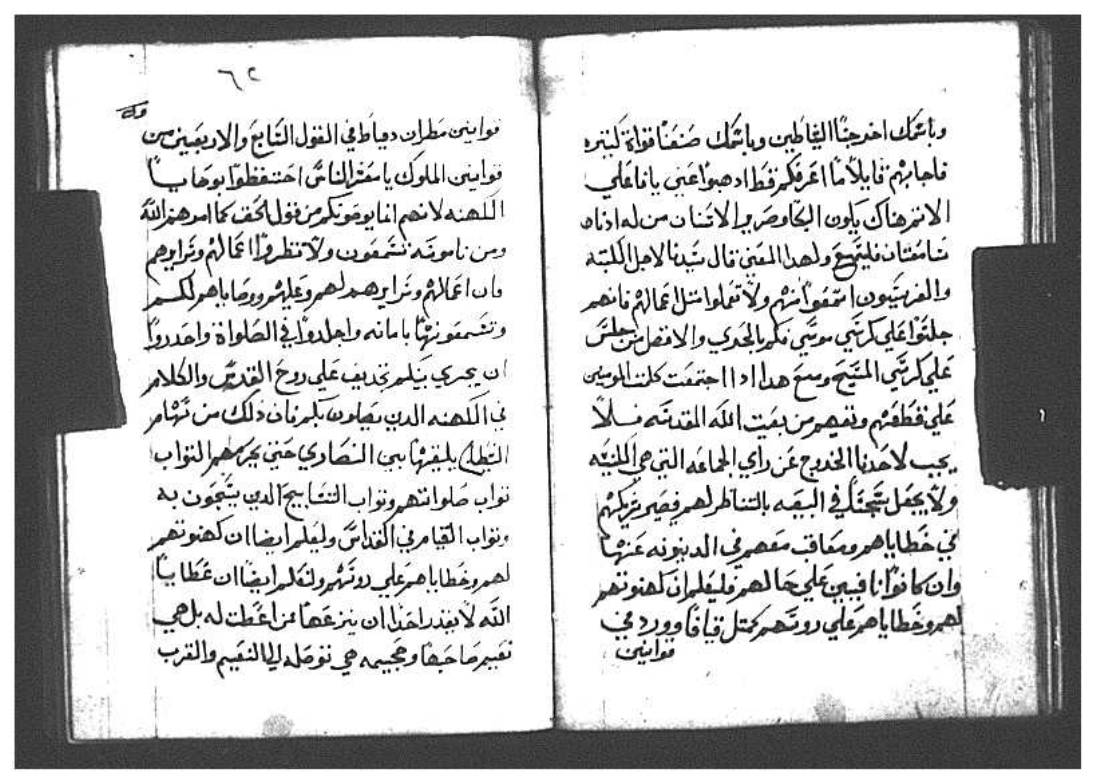 وباسمك اخرجنا الشياطين وباسمك صنعنا قواة كثيره
فاجابهم قايلاً ما اعرفكم قط ادهبوا عني يا فاعلي
الاتم هناك يكون البكا وصرير الاسنان من له ادنان
سامعتان فليسمع ولهدا المعني قال سيدنا لاجل الكتبة
والفريسيون اسمعوا منهم ولا تعملوا متل اعمالهم فانهم
جلسوا علي كرسي موسي فكم بالحري والافضل من جلس
علي كرسي المسيح ومع هدا ادا اجتمعت كلمت المومنين
علي قطعهم ونفيهم من بيعت الله المقدسه فلا
يجب لاحدنا الخروج عن راي الجماعه التي هي الكنيسه
ولا يجعل سجسًا في البيعه بالتناظر لهم فيصير شريكهم
في خطاياهم ومعاقب معهم في الدينونه عنها
وان كانوا تابتين علي حالهم فليعلم ان كهنوتهم
لهم وخطاياهم علي روسهم كمتل قيافا وورد في
قوانين
٦٢
قوانين مطران دمياط في القول السابع والاربعين من
قوانين الملوك يا معشر الناس احتفظوا بوصايا
الكهنه لانهم انما يوصونكم من قول الحق كما امرهم الله
ومن ناموسه تسمعون ولا تنظروا اعمالهم وسرايرهم
فان اعمالهم وسرايرهم لهم وعليهم ووصاياهم لكم
وتسمعونها بامانه واجلدوا في الصلواة واحدروا
ان يجري بينكم تجديف علي روح القدس والكلام
في الكهنه الدين يصلون بكم فان دلك من سهام
الشيطان يلقيها بين النصاري حتي يحرمهم التواب
تواب صلواتهم وتواب التسابيح الدين يسبحون به
وتواب القيام في القداس وليعلم ايضا ان كهنوتهم
لهم وخطاياهم علي روسهم ولنعلم ايضا ان عطايا
الله لا يقدر احدا ان ينزعها من اعطت له بل هي
نعيم صاحبها وجحيمه هي توصله الي النعيم والقرب